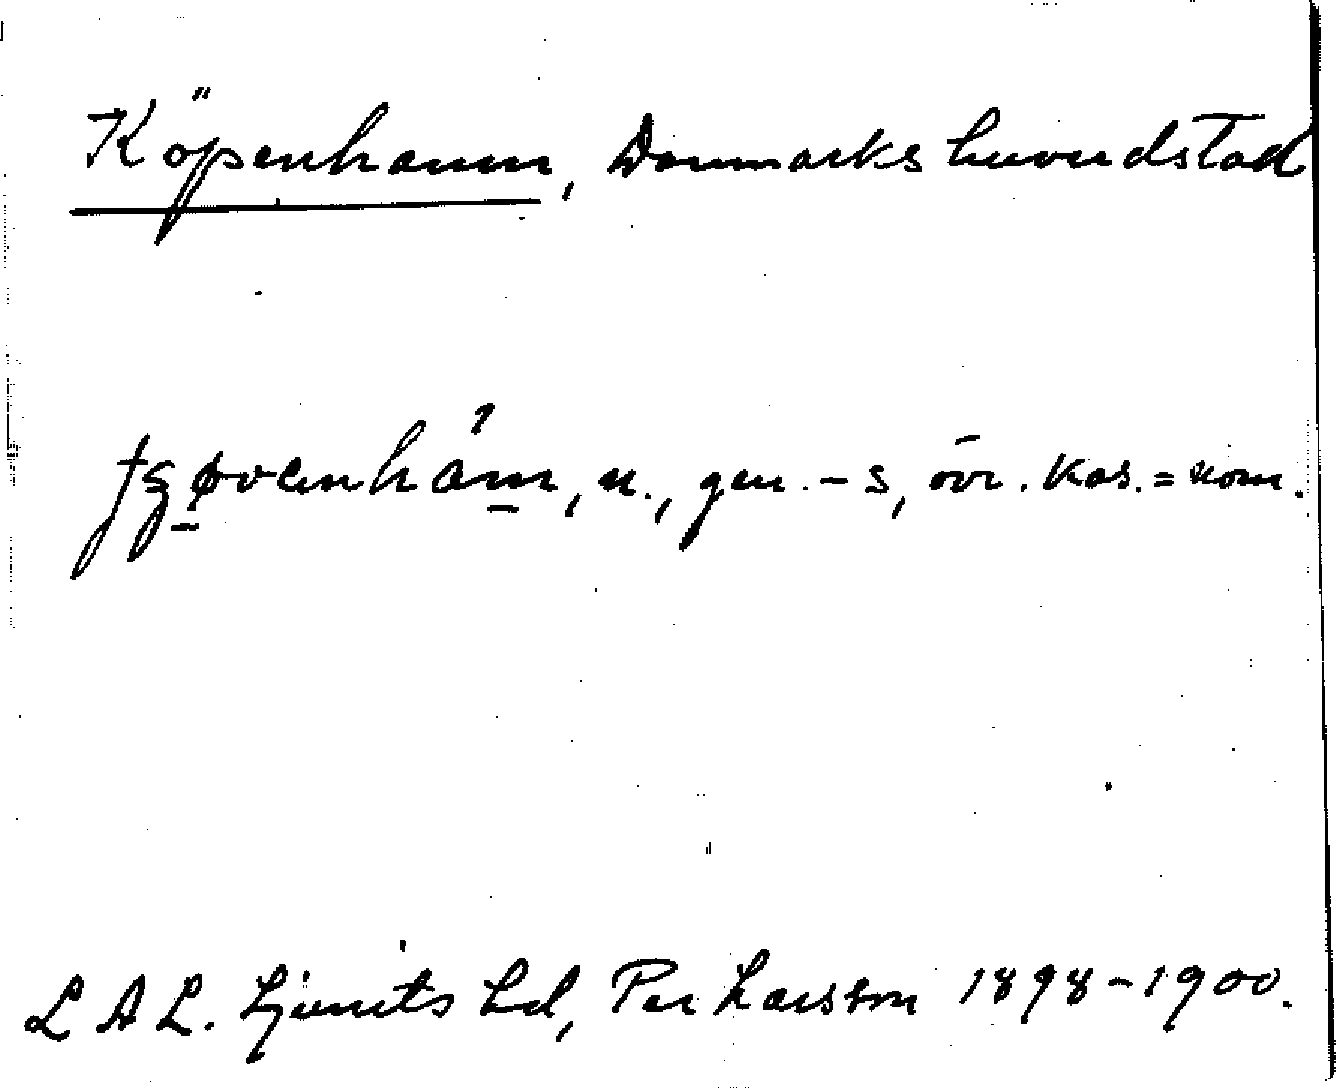 Köpenhamn, Danmarks huvudstad
n., gen. -s, övr. kas. = nom.
L A L. Ljunits hd, Per Larsson 1898-1900.